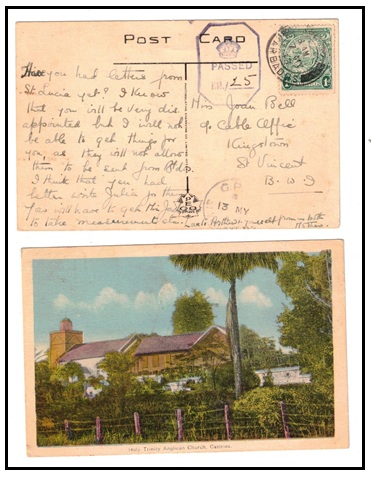 POST CARD
PASSED
25
Have you had letters from
St. Lucia yet? I know
that you will be very dis
appointed but I will not
be able to get things for
you, as they will not allow
them to be sent from B'dos.
I think that you had
better write Julia for them
you will have to get the
to take measurement etc.
Miss Joan Bell
Cable Office
Kingstown
St Vincent
B. W. I
BARBADOS
13 MY
Holy Trinity Anglican Church, Castries.